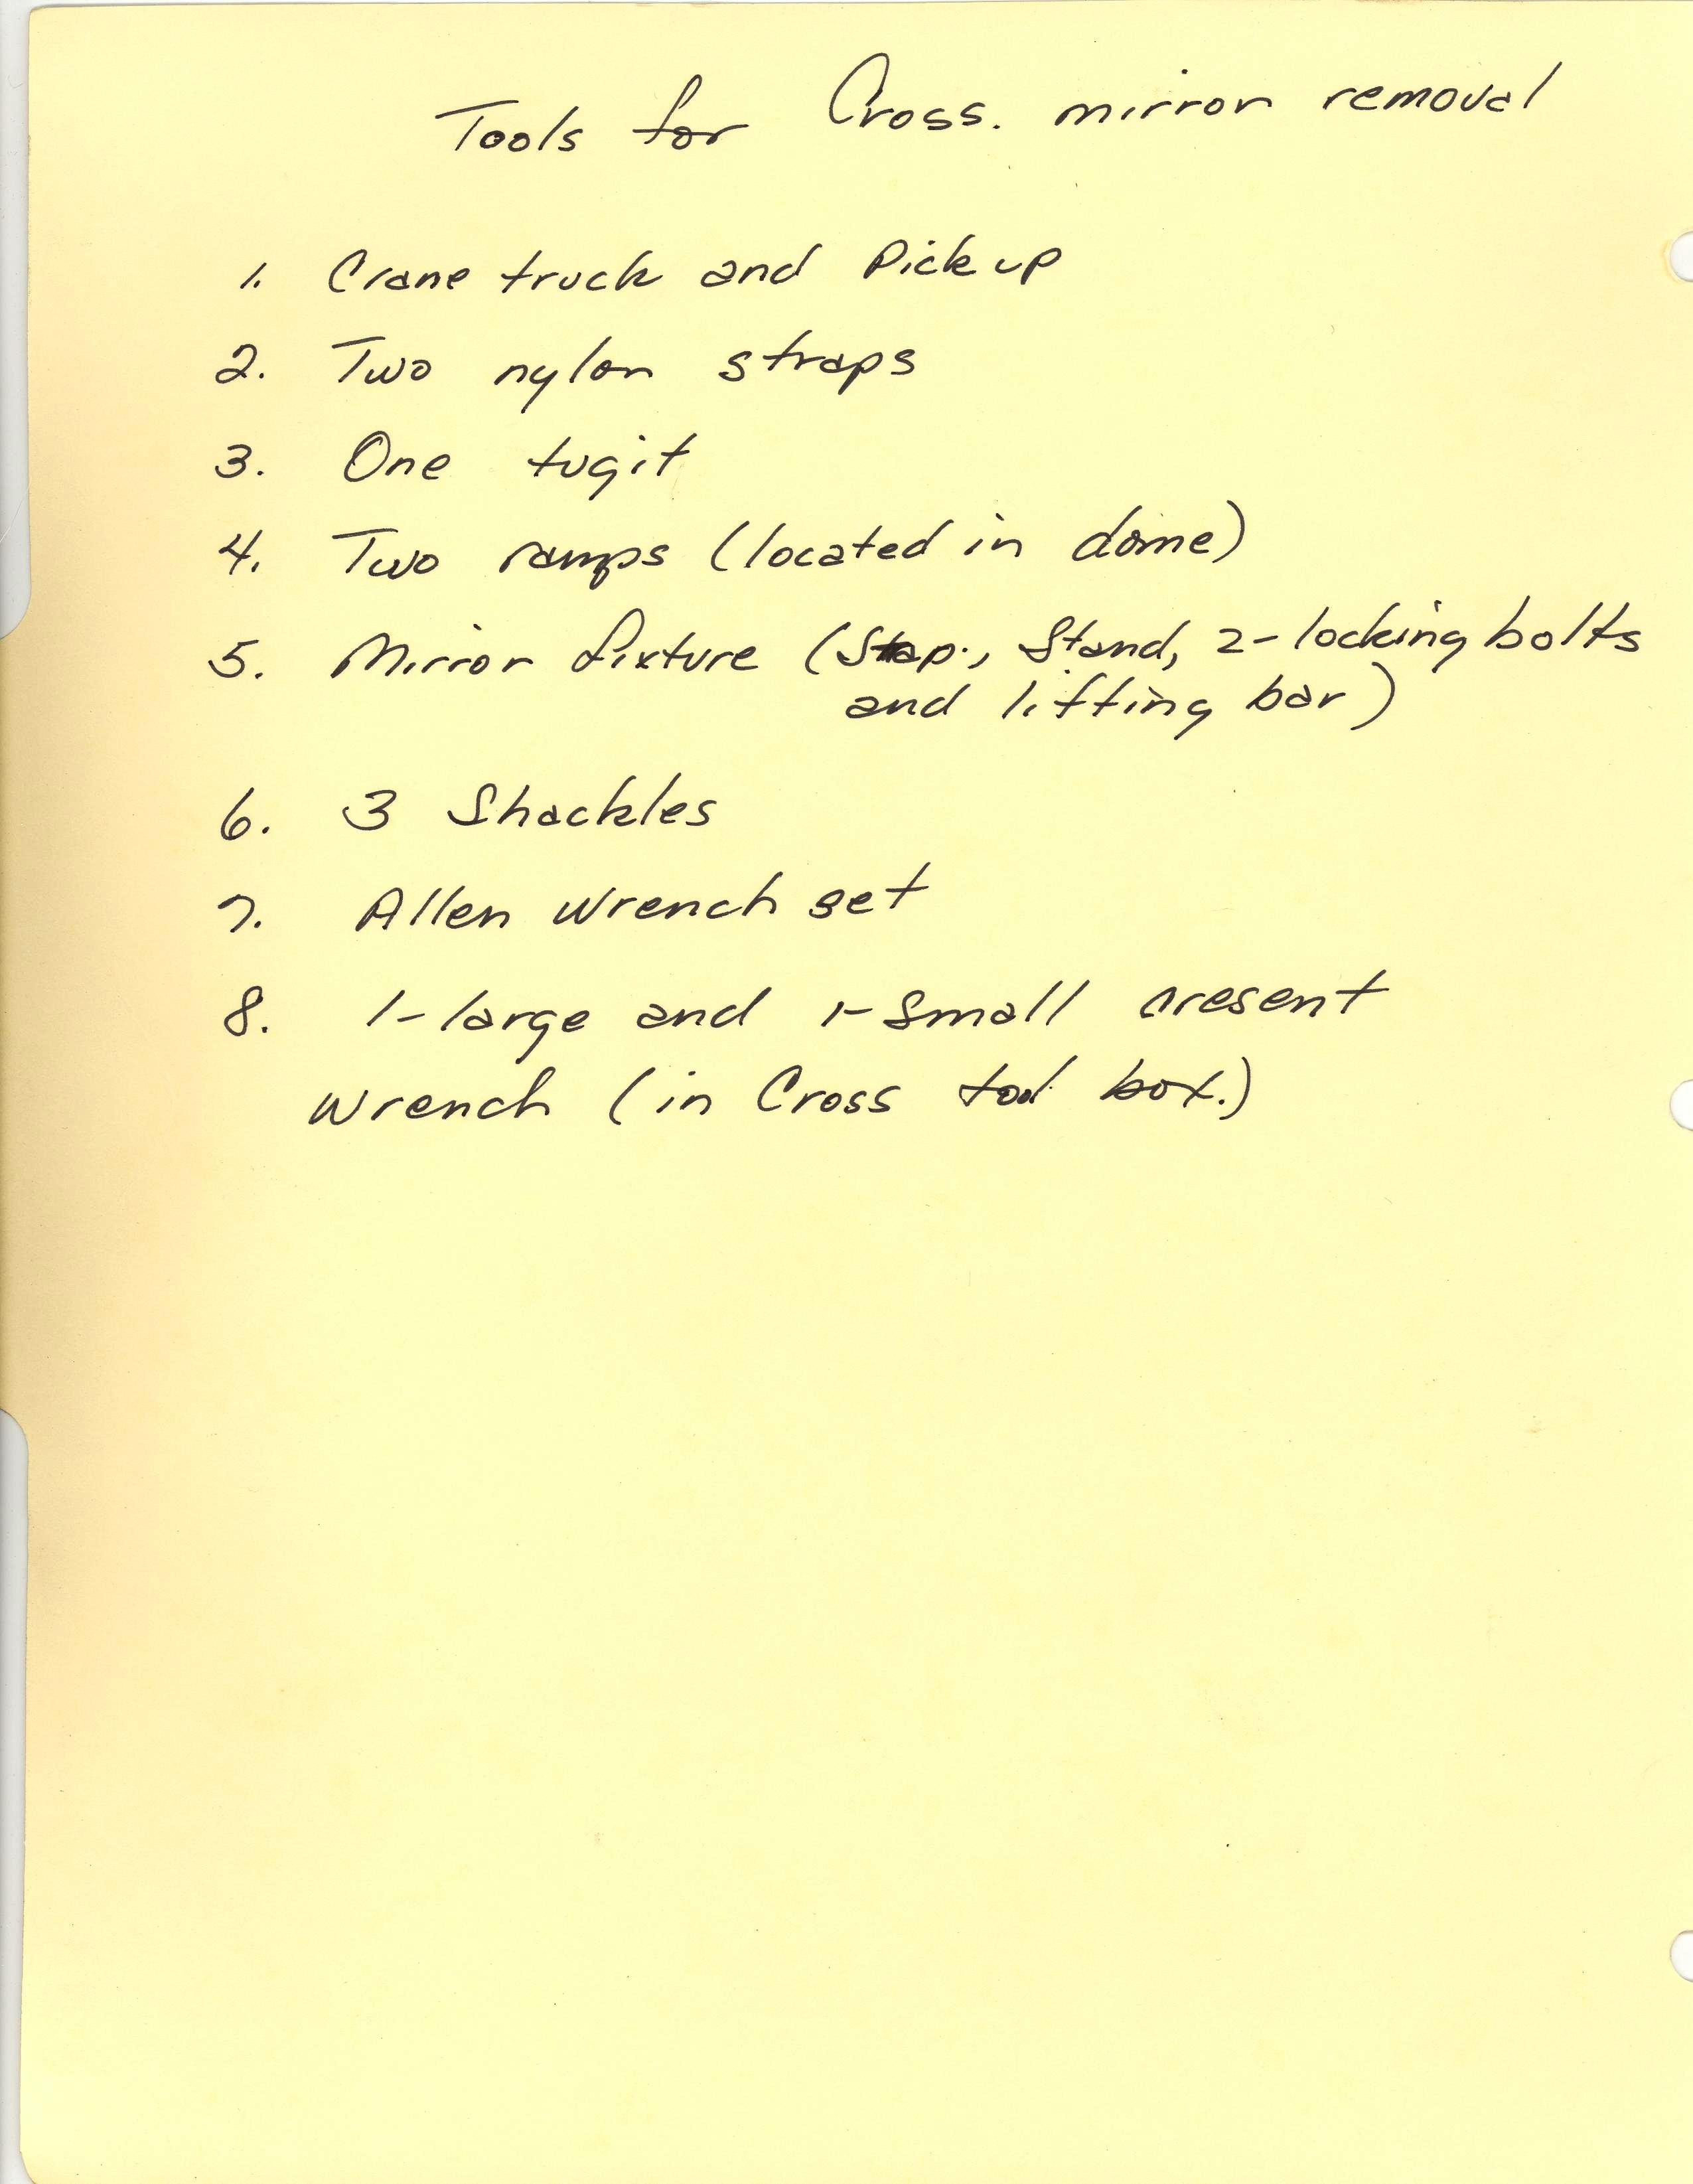 Tools for Cross. mirror removal
1. Crane truck and Pick up
2. Two nylon straps
3. One tugit
4. Two ramps (located in dome)
5. Mirror fixture (Stap., Stand, 2-locking bolts
and lifting bar)
6. 3 Shackles
7. Allen wrench set
8. 1-large and 1-Small cresent
wrench (in Cross tool box.)